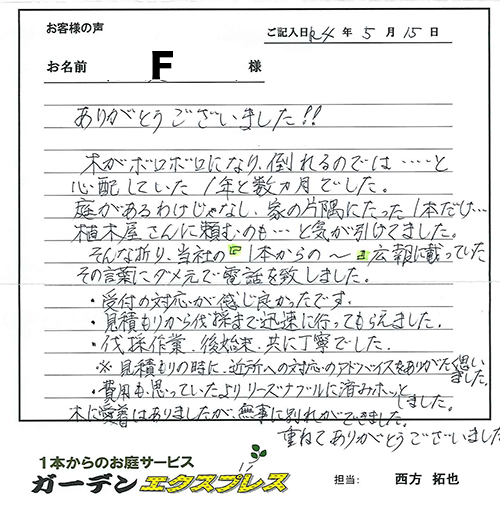 お客様の声
ご記入日 R4 年 5 月 15 日
お名前 F 様
ありがとうございました!!
木がボロボロになり、倒れるのでは……と
心配していた 1年と数ヵ月でした。
庭があるわけじゃなし、家の片隅にたった1本だけ…
植木屋さんに頼むのも…と気が引けてました。
そんな折り、当社の『1本からの〜』広報に載っていた
その言葉にダメ元で電話を致しました。
・受付の対応が感じ良かったです。
・見積もりから伐採まで迅速に行ってもらえました。
・伐採作業、後始末、共に丁寧でした。
※見積もりの時に、近所への対応のアドバイスをありがたく思いました。
・費用も思っていたよりリーズナブルに済みホッとしました。
木に愛着はありましたが、無事に別れができました。
重ねてありがとうございました
1本からのお庭サービス
ガーデンエクスプレス
担当: 西方 拓也